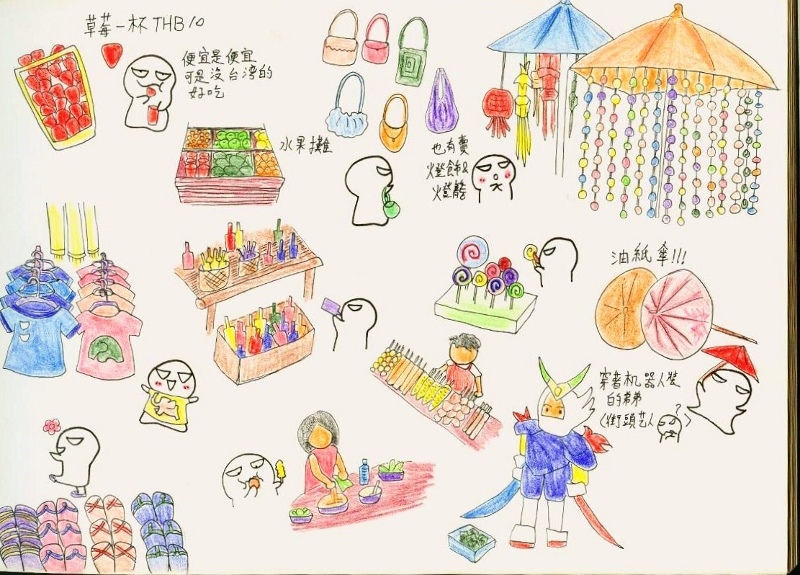 草莓一杯 THB 10
便宜是便宜
可是沒台灣的
好吃
水果攤
也有賣
燈飾&
燈籠
油紙傘!!!
穿著机器人裝
的弟弟
(街頭艺人
?